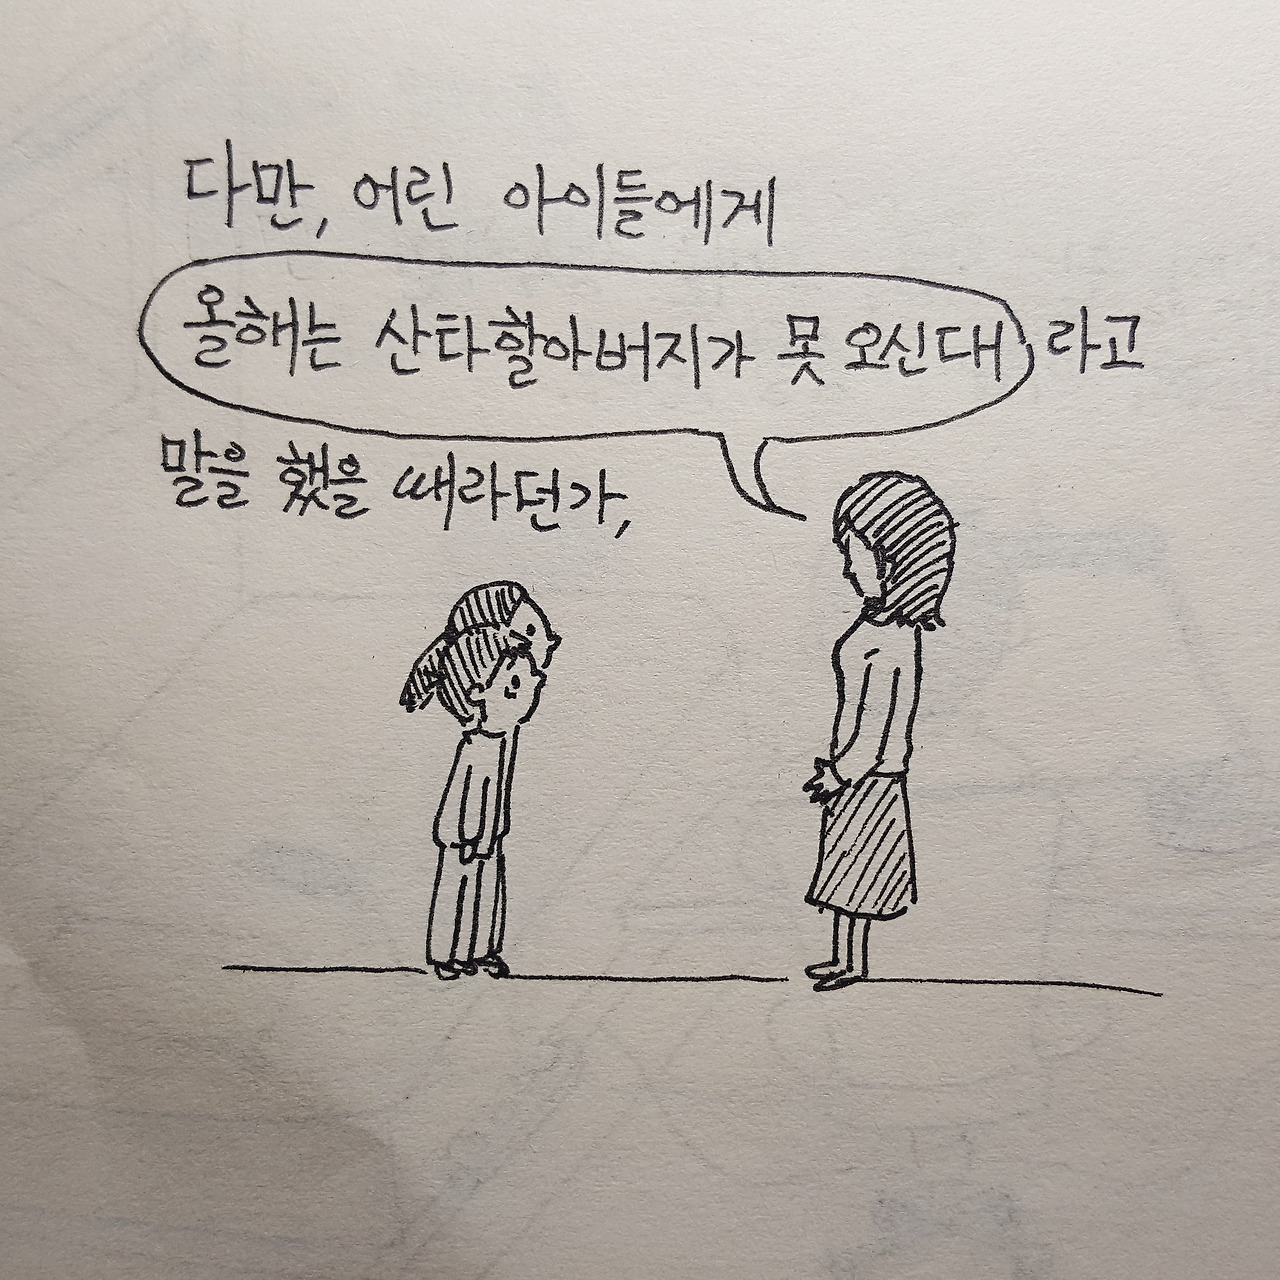 다만, 어린 아이들에게
올해는 산타할아버지가 못 오신대 라고
말을 했을 때라던가,